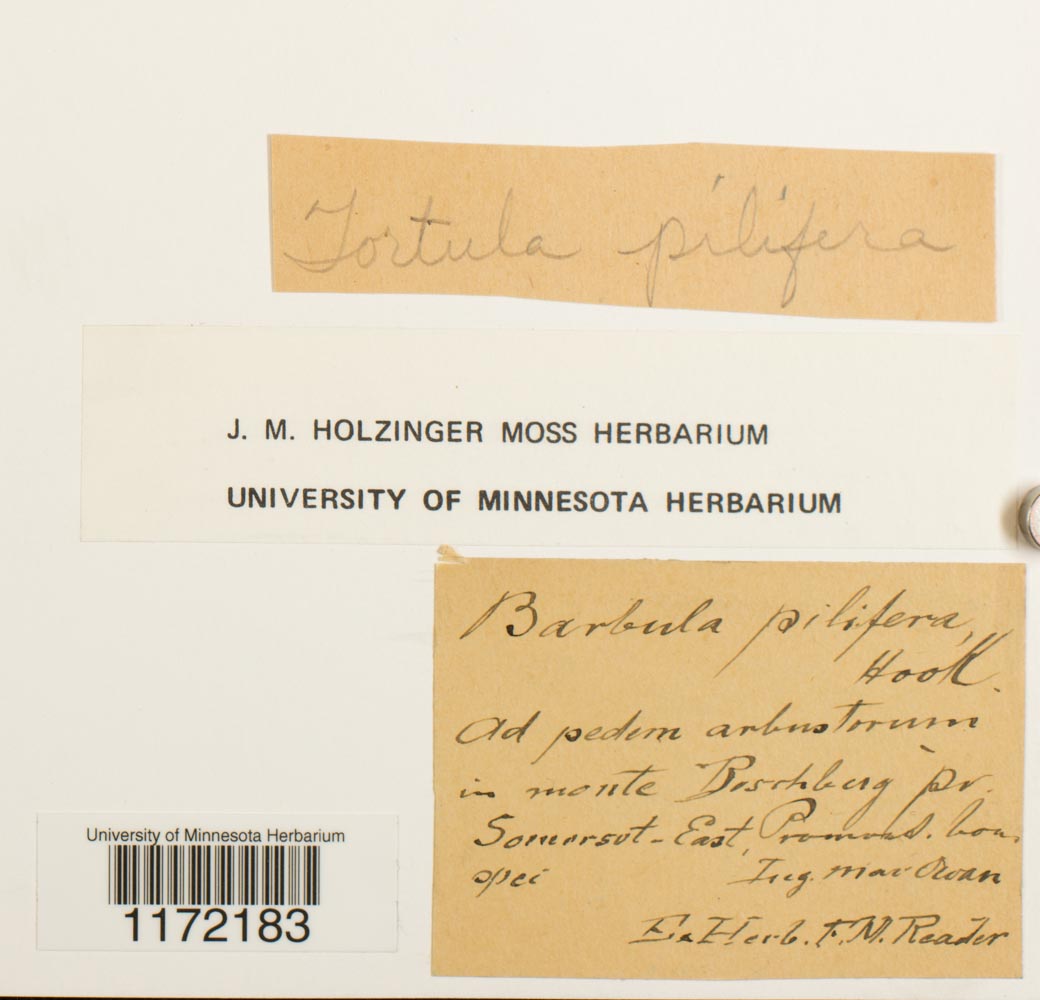 Tortula pilifera
J. M. HOLZINGER MOSS HERBARIUM
UNIVERSITY OF MINNESOTA HERBARIUM
Barbula pilifera,
Hook.
Ad pedem arbustorum
in monte Boschberg pr.
Somerset-East, Promont. bon.
spei Leg. MacOwan
Ex Herb. F. M. Reader
University of Minnesota Herbarium
1172183